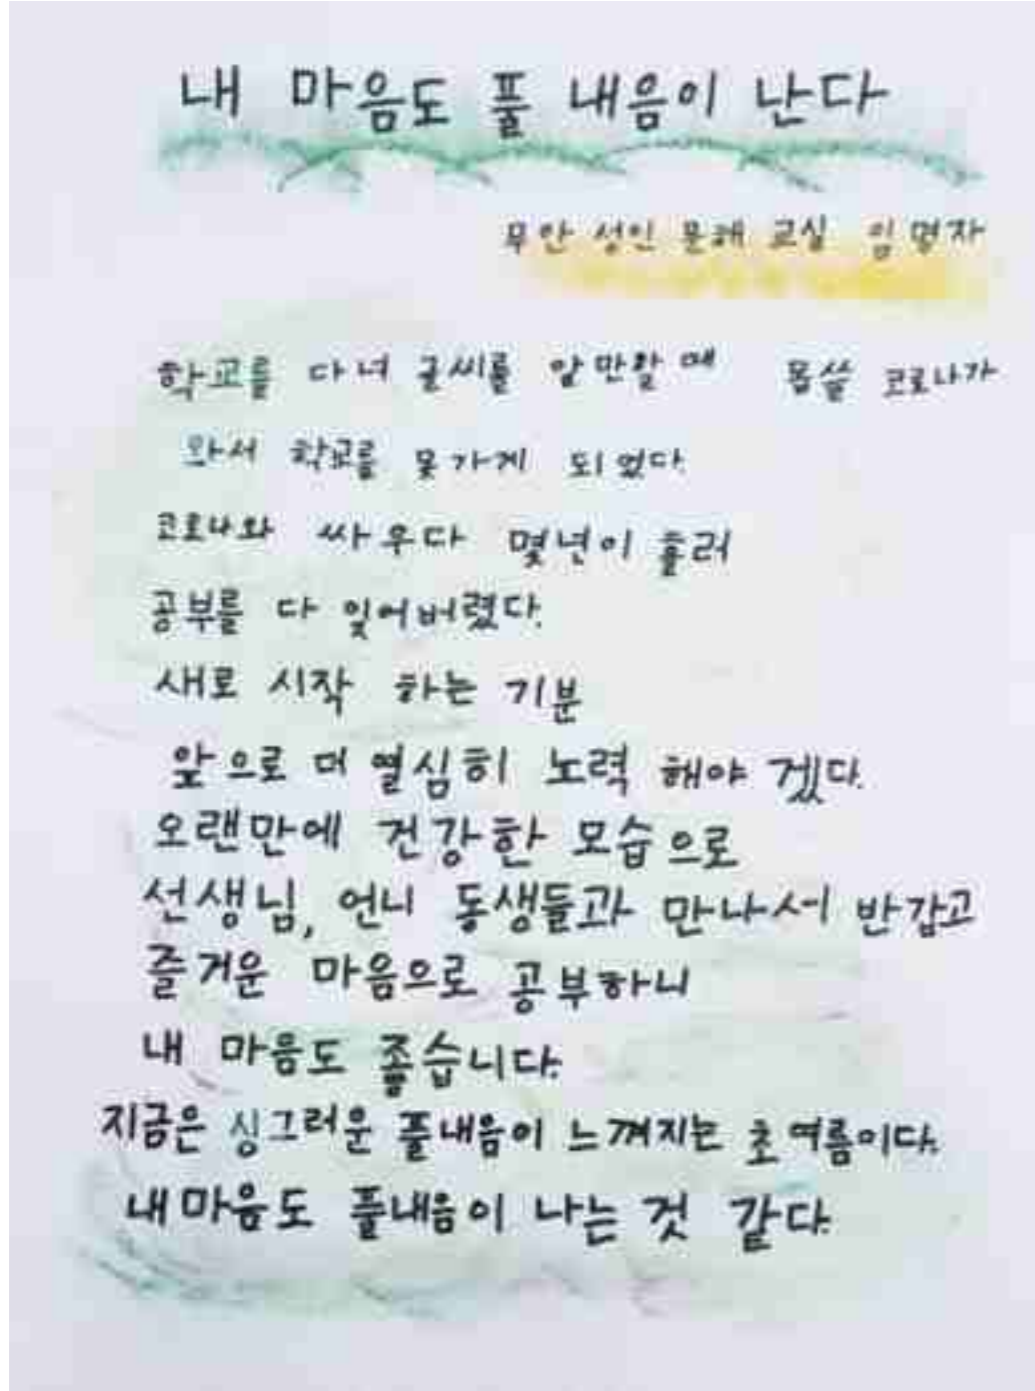 내 마음도 풀 내음이 난다
무안 성인 문해 교실 임명자
학교를 다녀 글씨를 알만할 때 몹쓸 코로나가
와서 학교를 못가게 되었다.
코로나와 싸우다 몇년이 흘러
공부를 다 잊어버렸다.
새로 시작 하는 기분
앞으로 더 열심히 노력 해야 겠다.
오랜만에 건강한 모습으로
선생님, 언니 동생들과 만나서 반갑고
즐거운 마음으로 공부하니
내 마음도 좋습니다.
지금은 싱그러운 풀내음이 느껴지는 초여름이다.
내마음도 풀내음이 나는 것 같다.